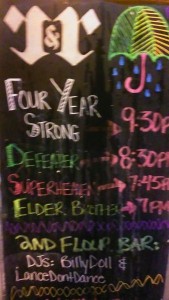 T&T
FOUR YEAR
STRONG → 9:30P
DEFEATER → 8:30P
SUPERHEAVEN → 7:45P
ELDER BROTHER → 7PM
2ND FLOOR BAR:
DJS: BILLYDOLL &
LANCEDONTDANCE